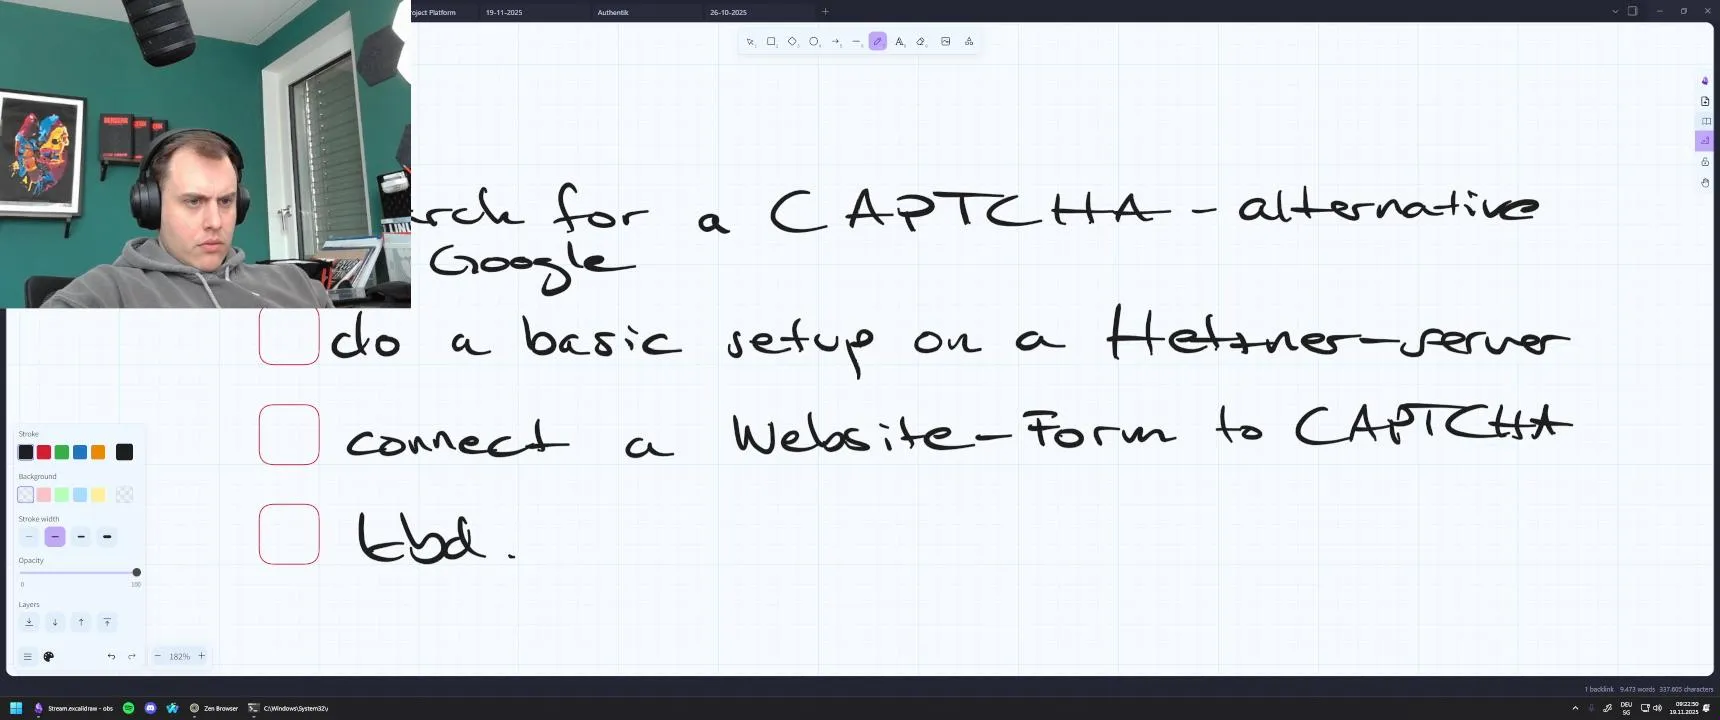 oject Platform
19-11-2025
Authentik
26-10-2025
BERSERK
rch for a CAPTCHA - alternative
Google
do a basic setup on a Hetzner-server
connect a Website-Form to CAPTCHA
tbd.
Stroke
Background
Stroke width
Opacity
0
100
Layers
182%
1 backlink 9.473 words 337.605 characters
Stream.excalidraw - obs
Zen Browser
C:\Windows\System32\
DEU
SG
09:22:50
19.11.2025